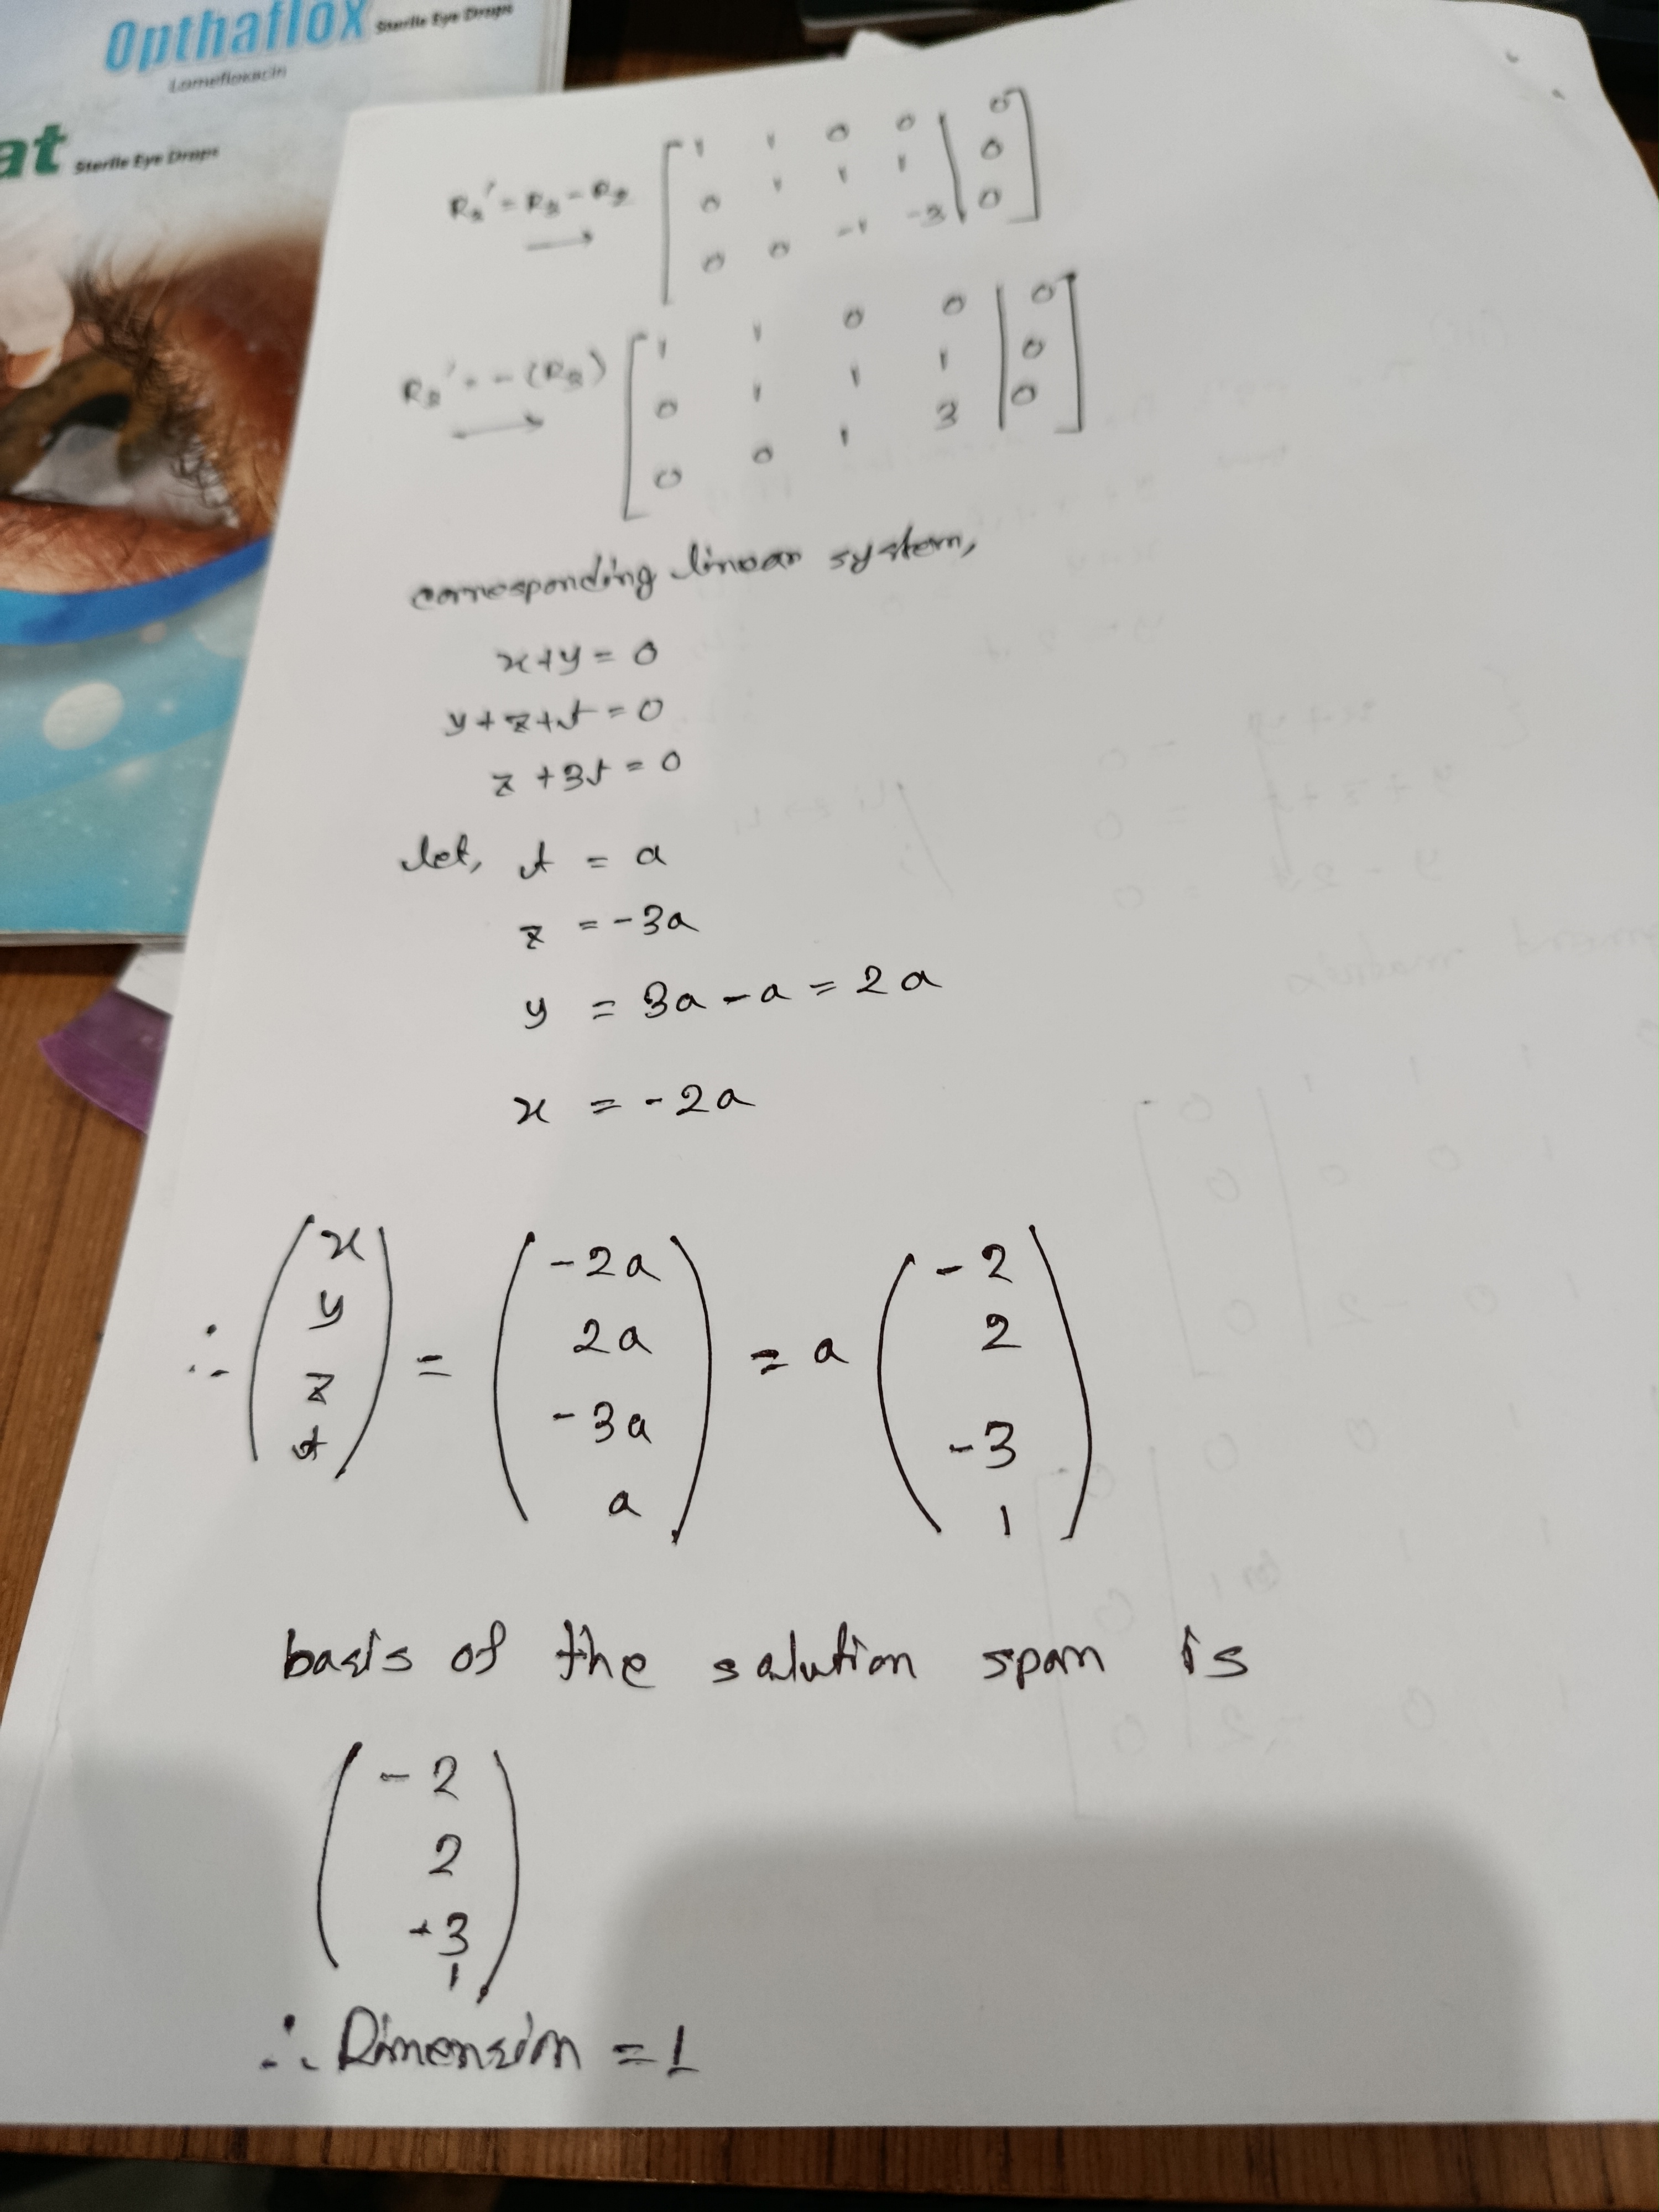 Opthaflox Sterile Eye Drops
Lomefloxacin
at Sterile Eye Drops
R₃' = R₃ - R₂ → [ 1 1 0 0 | 0 ]
[ 0 1 1 1 | 0 ]
[ 0 0 -1 -3 | 0 ]
R₃' = -(R₃) → [ 1 1 0 0 | 0 ]
[ 0 1 1 1 | 0 ]
[ 0 0 1 3 | 0 ]
corresponding linear system,
x+y = 0
y+z+t = 0
z+3t = 0
let, t = a
z = -3a
y = 3a - a = 2a
x = -2a
∴ ( x y z t ) = ( -2a 2a -3a a ) = a ( -2 2 -3 1 )
basis of the solution span is
( -2
2
-3
1 )
∴ Dimension = 1